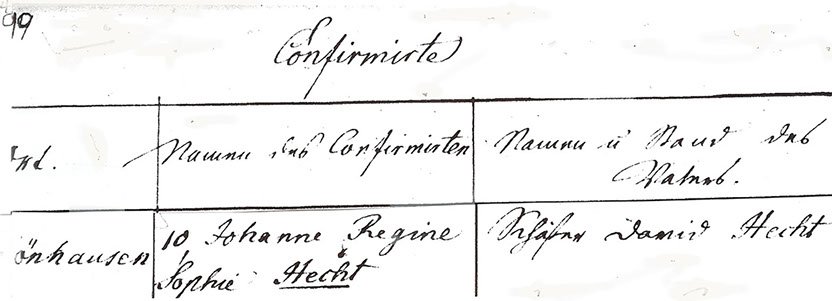 99
Confirmirte
Ort. Namen des Confirmirten Namen u Stand des
Vaters.
önhausen 10, Johanne Regine Schäfer David Hecht
Sophie Hecht